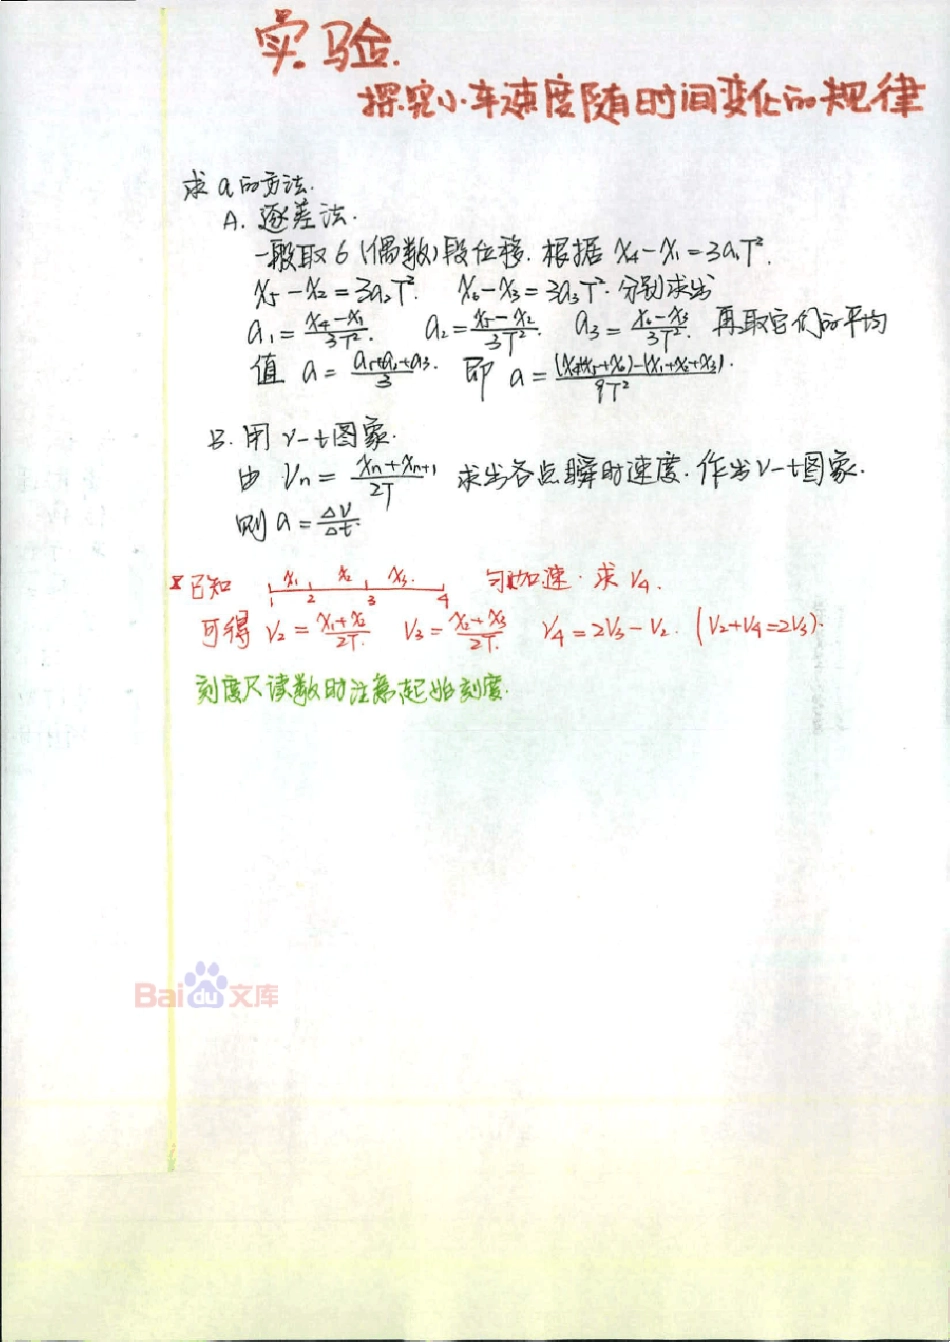 实验.
探究小车速度随时间变化的规律
求a的方法.
A. 逐差法.
一般取6(偶数)段位移. 根据 x₄-x₁=3a₁T².
x₅-x₂=3a₂T². x₆-x₃=3a₃T². 分别求出
a₁=(x₄-x₁)/3T². a₂=(x₅-x₂)/3T². a₃=(x₆-x₃)/3T². 再取它们的平均
值 a=(a₁+a₂+a₃)/3. 即 a=((x₄+x₅+x₆)-(x₁+x₂+x₃))/9T².
B. 用v-t图象.
由 Vn=(xn+xn+1)/2T 求出各点瞬时速度. 作出v-t图象.
则 a=△V/△t.
已知 x₁ x₂ x₃. 匀加速. 求 V₄.
1 2 3 4
可得 V₂=(x₁+x₂)/2T. V₃=(x₂+x₃)/2T. V₄=2V₃-V₂. (V₂+V₄=2V₃).
刻度尺读数时注意起始刻度.
Baidu文库